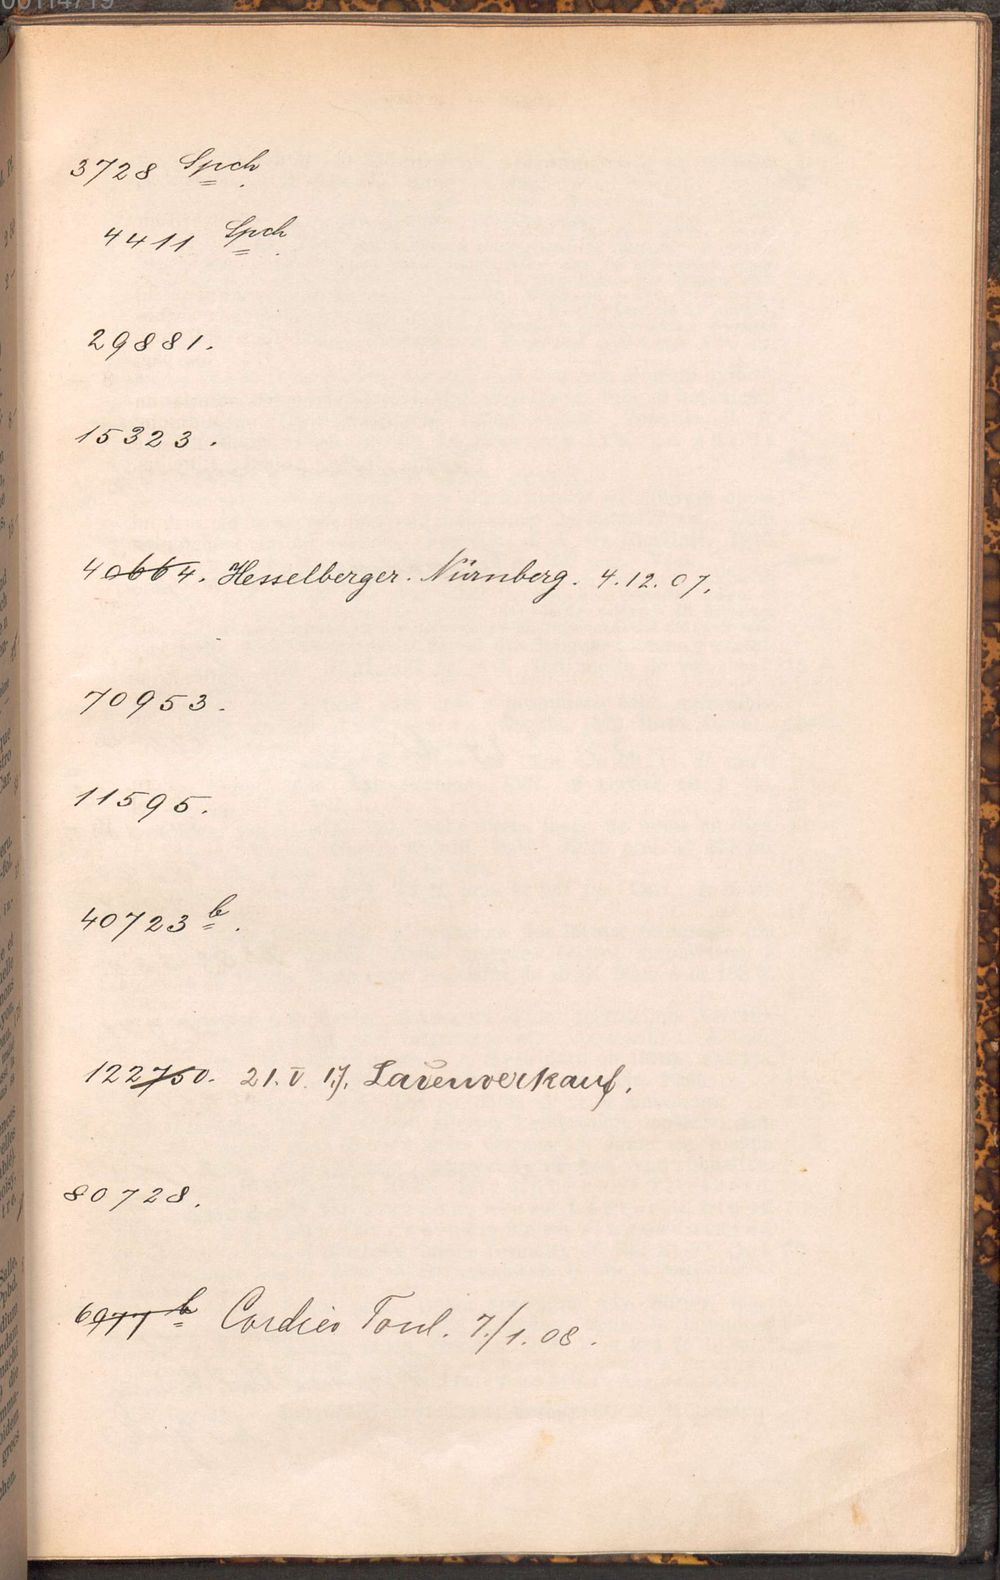 3728 Spch.
4411 Spch.
29881.
15323.
40664. Hesselberger. Nürnberg. 4.12.07.
70953.
11595.
40723 b.
122750. 21.V.17. Ladenverkauf.
80728.
6977 b 7./1.08.